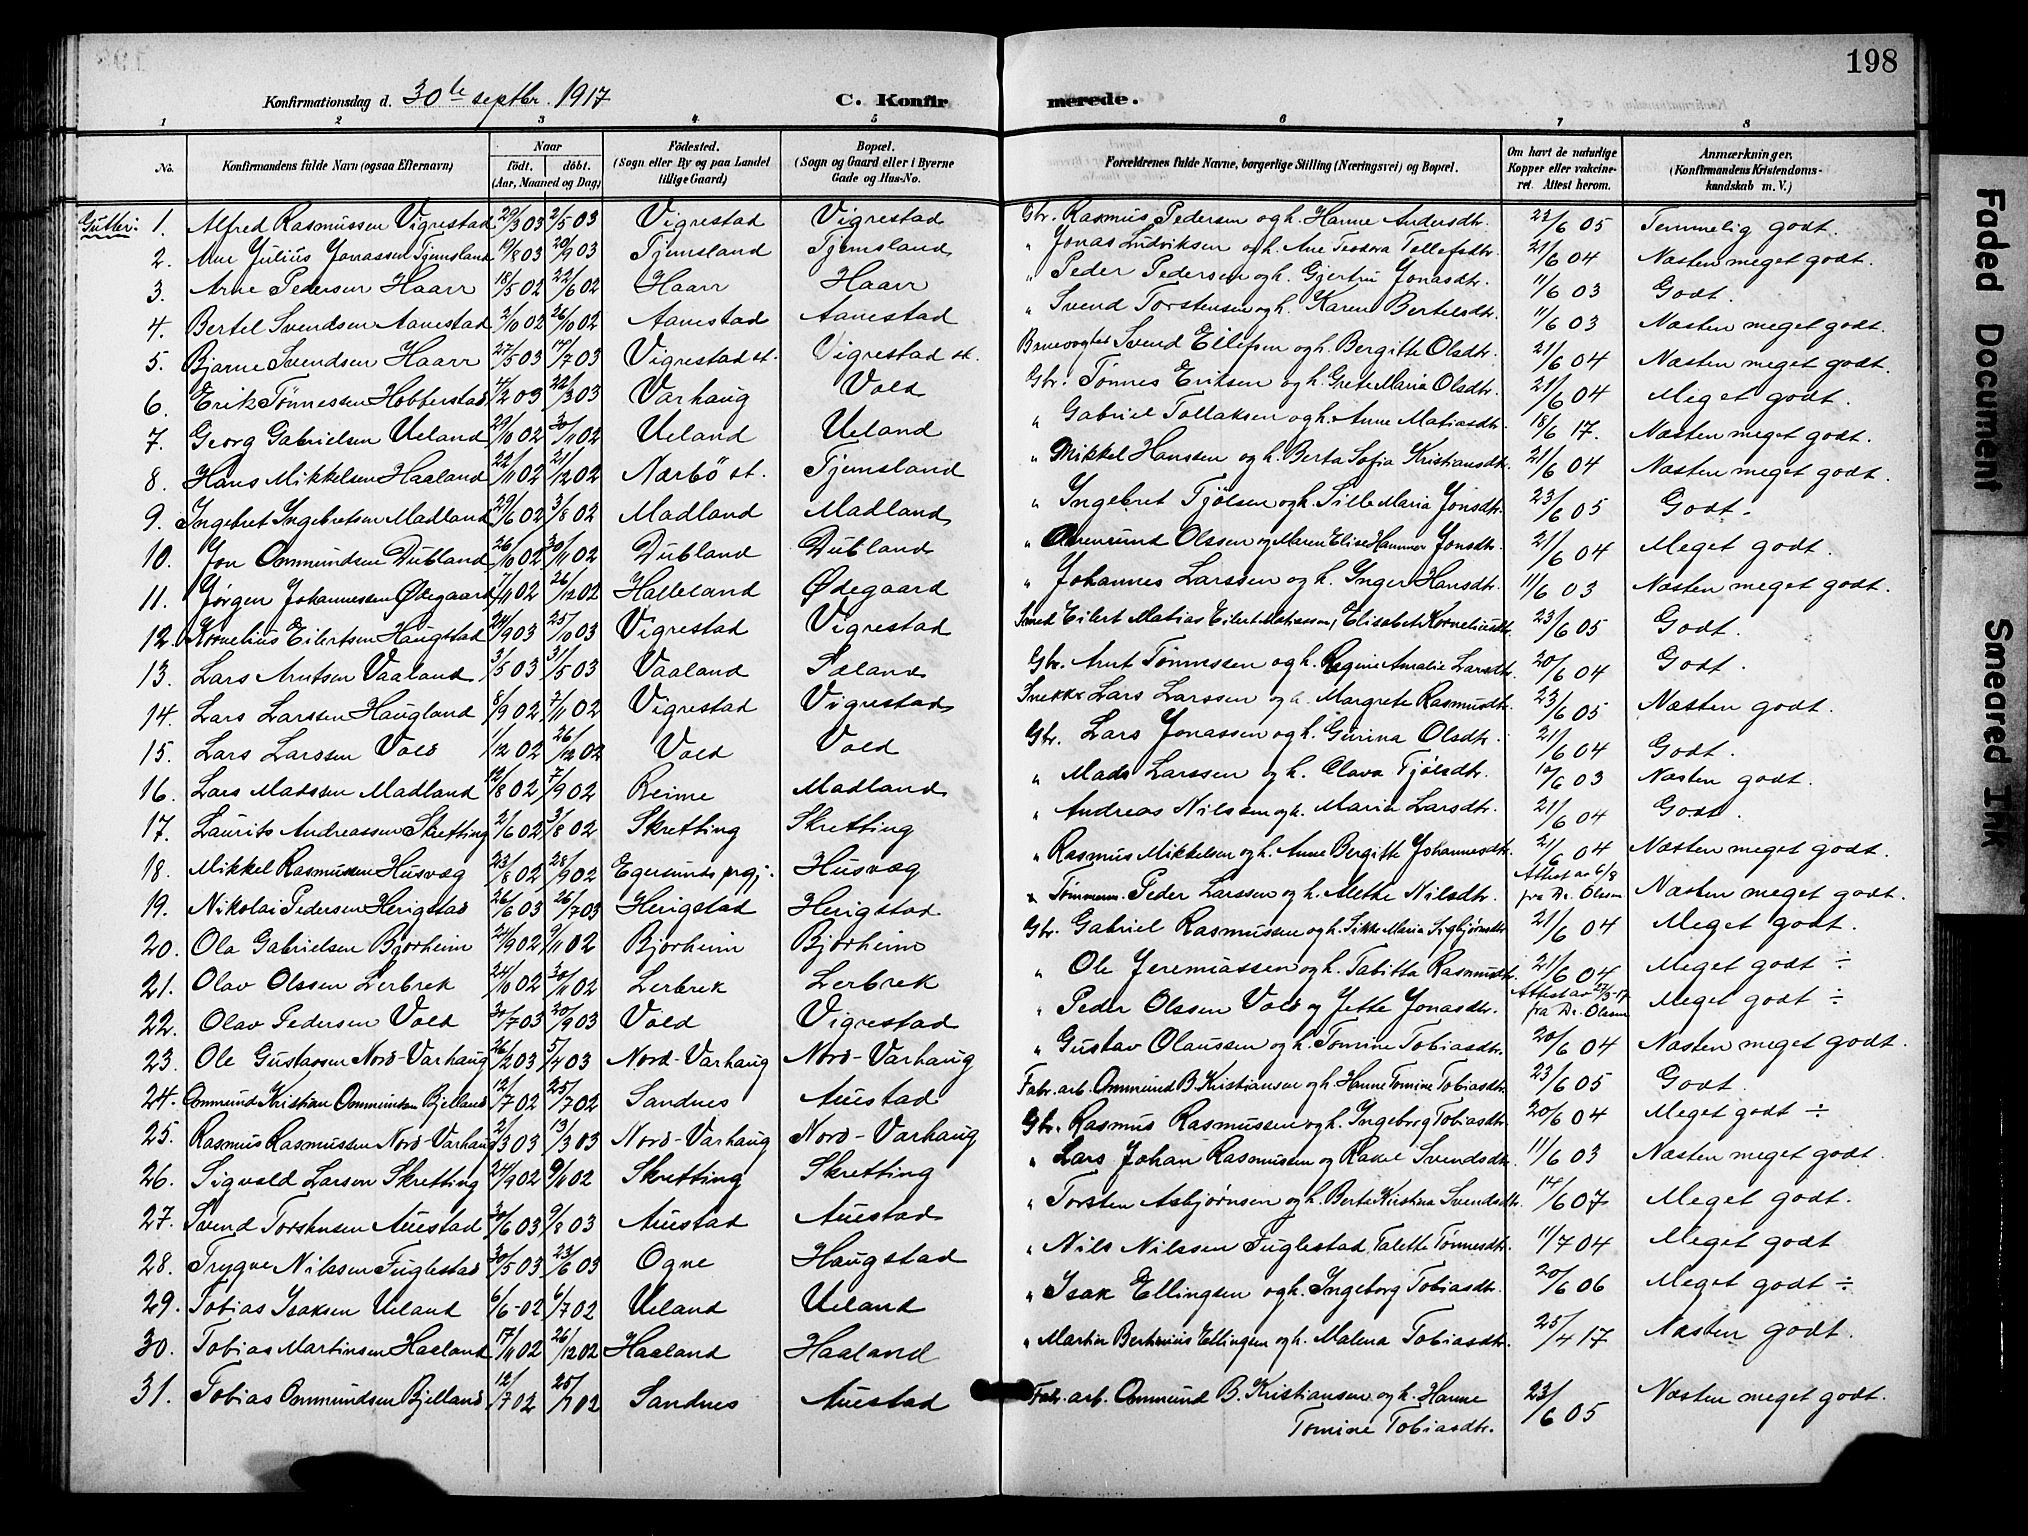 198
Konfirmationsdag d. 30te septbr. 1917 C. Konfirmerede.
1 2 3 4 5 6 7 8
No. Konfirmandens fulde Navn (ogsaa Efternavn) Naar Födt. döbt. (Aar, Maaned og Dag) Födested. (Sogn eller By og paa Landet tillige Gaard) Bopæl. (Sogn og Gaard eller i Byerne Gade og Hus-No. Forældrenes fulde Navne, borgerlige Stilling (Næringsvei) og Bopæl. Om havt de naturlige Kopper eller vakcineret. Attest herom. Anmærkninger. (Konfirmandens Kristendomskundskab m. V.)
Gutter:
1. Alfred Rasmussen Vigrestad 29/3 03 2/5 03 Vigrestad Vigrestad Gbr. Rasmus Pedersen og h. Hanne Andersdtr. 23/6 05 Temmelig godt.
2. Julius Jonassen Tjemsland 19/8 03 20/9 03 Tjemsland Tjemsland " Jonas Ludviksen og h. Ane Teodora Tollefsdtr. 21/6 04 Næsten meget godt.
3. Arne Pedersen Haarr 18/5 02 22/6 02 Haarr Haarr " Peder Pedersen og h. Gjertru Jonasdtr. 11/6 03 Godt.
4. Bertel Svendsen Aanestad 2/10 02 26/10 02 Aanestad Aanestad " Svend Torstensen og h. Karen Bertelsdtr. 11/6 03 Næsten meget godt.
5. Bjarne Svendsen Haarr 27/5 03 17/7 03 Vigrestad st. Vigrestad st. Banevogter Svend Eilefsen og h. Bergitte Olsdtr. 21/6 04 Næsten meget godt.
6. Erik Tønnessen Hobberstad 4/2 03 22/3 03 Varhaug Vold Gbr. Tønnes Eriksen og h. Grete Maria Olsdtr. 21/6 04 Meget godt.
7. Georg Gabrielsen Ueland 29/10 02 30/11 02 Ueland Ueland " Gabriel Tollaksen og h. Anne Matiasdtr. 18/6 17. Næsten meget godt.
8. Hans Mikkelsen Haaland 22/11 02 21/12 02 Nærbö st. Tjemsland " Mikkel Hanssen og h. Berta Sofia Kristiansdtr. 21/6 04 Næsten meget godt.
9. Ingebret Ingebretsen Madland 29/6 02 3/8 02 Madland Madland " Ingebret Tjölsen og h. Sille Maria Jonsdtr. 23/6 05 Godt.
10. Jon Ommundsen Dubland 26/10 02 30/11 02 Dubland Dubland " Ommund Olssen og Maren Elise Jonsdtr. 21/6 04 Meget godt.
11. Jørgen Johannessen Ødegaard 7/11 02 26/12 02 Halleland Ødegaard " Johannes Larssen og h. Inger Hansdtr. 11/6 03 Næsten meget godt.
12. Kornelius Eilertsen Haugstad 24/9 03 25/10 03 Vigrestad Vigrestad Smed Eilert Matias Eilert Matiassen, Elisabet Korneliusdtr. 23/6 05 Godt.
13. Lars Arntsen Vaaland 3/5 03 31/5 03 Vaaland Søland Gbr. Arnt Tønnessen og h. Regine Amalie Larsdtr. 20/6 04 Godt.
14. Lars Larssen Haugland 8/9 02 2/11 02 Vigrestad Vigrestad Snekker Lars Larssen og h. Margrete Rasmusdtr. 23/6 05 Næsten godt.
15. Lars Larssen Vold 1/12 02 26/12 02 Vold Vold Gbr. Lars Jonassen og h. Gurina Olsdtr. 21/6 04 Godt.
16. Lars Madssen Madland 12/8 02 7/9 02 Reime Madland " Mads Larssen og h. Olava Tjölsdtr. 10/6 03 Næsten godt.
17. Laurits Andreassen Skretting 2/6 02 3/8 02 Skretting Skretting " Andreas Nilssen og h. Maria Larsdtr. 21/6 04 Godt.
18. Mikkel Rasmussen Husvæg 23/8 02 28/9 02 Egersunds prgj. Husvæg " Rasmus Mikkelsen og h. Anne Bergitte Johannesdtr. 21/6 04 Næsten meget godt.
19. Nikolai Pedersen Herigstad 26/6 03 26/7 03 Herigstad Herigstad Tömmerm. Peder Larssen og h. Mette Nilsdtr. Attest av 6/8 fra Dr. Olsen Næsten meget godt.
20. Ola Gabrielsen Bjorheim 24/9 02 9/11 02 Bjorheim Bjorheim Gbr. Gabriel Rasmussen og h. Sikke Maria Sigbjørnsdtr. 21/6 04 Meget godt.
21. Olav Olssen Lerbrek 24/10 02 30/11 02 Lerbrek Lerbrek " Ole Jeremiassen og h. Tabitta Rasmusdtr. 21/6 04 Meget godt ÷
22. Olav Pedersen Vold 30/7 03 20/9 03 Vold Vigrestad " Peder Olssen Vold og Jette Jonasdtr. Attest av 27/3-17 fra Dr. Olsen Meget godt ÷
23. Ole Gustavsen Nord-Varhaug 26/2 03 5/4 03 Nord-Varhaug Nord-Varhaug " Gustav Olaussen og h. Tomine Tobiasdtr. 20/6 04 Næsten meget godt.
24. Ommund Kristian Ommundsen Bjelland 12/7 02 25/7 02 Sandnes Auestad Fabr. arb. Ommund B. Kristiansen og h. Hanne Tomine Tobiasdtr. 23/6 05 Godt.
25. Rasmus Rasmussen Nord-Varhaug 2/3 03 13/3 03 Nord-Varhaug Nord-Varhaug Gbr. Rasmus Rasmussen og h. Ingeborg Tobiasdtr. 20/6 04 Meget godt ÷
26. Sigvald Larsen Skretting 24/9 02 9/11 02 Skretting Skretting " Lars Johan Rasmussen og Rakel Svendsdtr. 11/6 03 Næsten meget godt.
27. Svend Torstensen Auestad 30/6 03 9/8 03 Auestad Auestad " Torsten Asbjørnsen og h. Berta Kristina Svendsdtr. 14/6 07 Meget godt.
28. Trygve Nilssen Fuglestad 30/5 03 23/6 03 Ogne Haugstad " Nils Nilssen Fuglestad, Talette Tønnesdtr. 11/7 04 Meget godt
29. Tobias Isaksen Ueland 6/6-02 6/7 02 Ueland Ueland " Isak Ellingsen og h. Ingeborg Tobiasdtr. 20/6 06 Meget godt ÷
30. Tobias Martinsen Haaland 17/11 02 26/12 02 Haaland Haaland " Martin Bertinius Ellingsen og h. Malena Tobiasdtr. 25/4 17 Næsten godt.
31. Tobias Ommundsen Bjelland 12/7 02 25/7 02 Sandnes Auestad Fabr. arb. Ommund B. Kristiansen og h. Hanne Tomine Tobiasdtr. 23/6 05 Næsten meget godt.
Faded Document
Smeared Ink